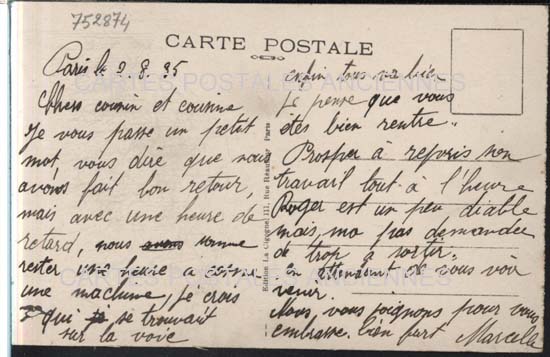 752874
CARTE POSTALE
CARTES POSTALES ANCIENNES
Paris le 9.8.35
Chers cousin et cousine
Je vous passe un petit
mot, vous dire que nous
avons fait bon retour,
mais avec une heure de
retard, nous avons somme
rester une heure a
une machine, Je crois
qui se trouvait
sur la voie
enfin tous va bien
Je pense que vous
êtes bien rentre.
Prosper à repris son
travail tout à l'heure
Roger est un peu diable
mais, ma pas demandee
de trop a sortir.
en attendant de vous voir
venir.
Nous, vous joignons pour vous
embrasse. bien fort Marcelle
Edition La Cigogne, 111, Rue Réaumur Paris
CARTES POSTALES ANCIENNES